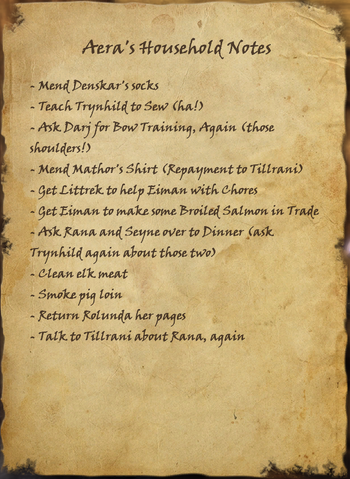 Aera's Household Notes
- Mend Denskar's socks
- Teach Trynhild to Sew (ha!)
- Ask Darj for Bow Training, Again (those
shoulders!)
- Mend Mathor's Shirt (Repayment to Tillrani)
- Get Littrek to help Eiman with Chores
- Get Eiman to make some Broiled Salmon in Trade
- Ask Rana and Seyne over to Dinner (ask
Trynhild again about those two)
- Clean elk meat
- Smoke pig loin
- Return Rolunda her pages
- Talk to Tillrani about Rana, again